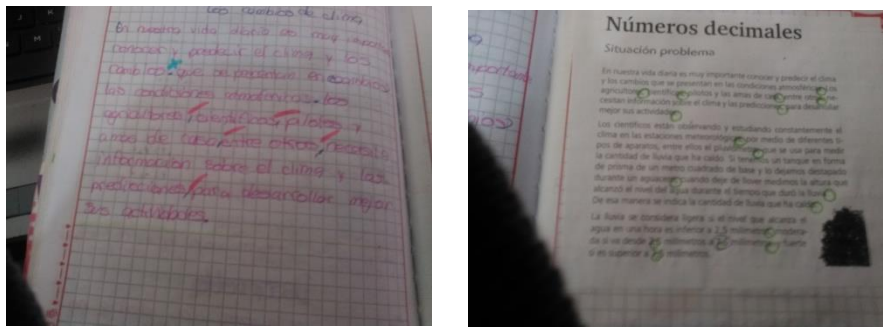 Los cambios de clima
En nuestra vida diaria es muy importante
conocer y predecir el clima y los
cambios que se presentan en
las condiciones atmosféricas. los
agricultores, científicos, pilotos y
amas de casa, entre otros, necesitan
información sobre el clima y las
predicciones, para desarrollar mejor
sus actividades.
Números decimales
Situación problema
En nuestra vida diaria es muy importante conocer y predecir el clima
y los cambios que se presentan en las condiciones atmosféricas. Los
agricultores, científicos, pilotos y las amas de casa, entre otros, ne-
cesitan información sobre el clima y las predicciones, para desarrollar
mejor sus actividades.
Los científicos están observando y estudiando constantemente el
clima en las estaciones meteorológicas, por medio de diferentes ti-
pos de aparatos, entre ellos el pluviómetro, que se usa para medir
la cantidad de lluvia que ha caído. Si tenemos un tanque en forma
de prisma de un metro cuadrado de base y lo dejamos destapado
durante un aguacero, cuando deje de llover medimos la altura que
alcanzó el nivel del agua durante el tiempo que duró la lluvia.
De esa manera se indica la cantidad de lluvia que ha caído.
La lluvia se considera ligera si el nivel que alcanza el
agua en una hora es inferior a 2,5 milímetros, modera-
da si va desde 2,5 milímetros a 7,5 milímetros y fuerte
si es superior a 7,5 milímetros.